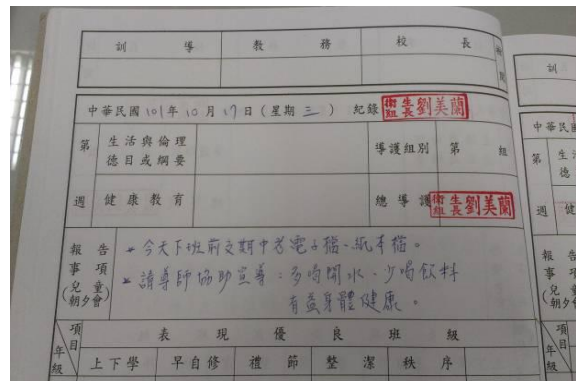 訓導 教務 校長
中華民國101年10月17日(星期三) 紀錄 衛生組長劉美蘭
第 週
生活與倫理德目或綱要 導護組別 第 組
健康教育 總導護 衛生組長劉美蘭
報告事項(兒童朝夕會)
* 今天下班前交期中考電子檔、紙本檔。
* 請導師協助宣導:多喝開水、少喝飲料
有益身體健康。
項目 表現優良班級
年級 上下學 早自修 禮節 整潔 秩序
訓
中華民國
第 週
報告事項(兒童朝夕會)
項目
年級